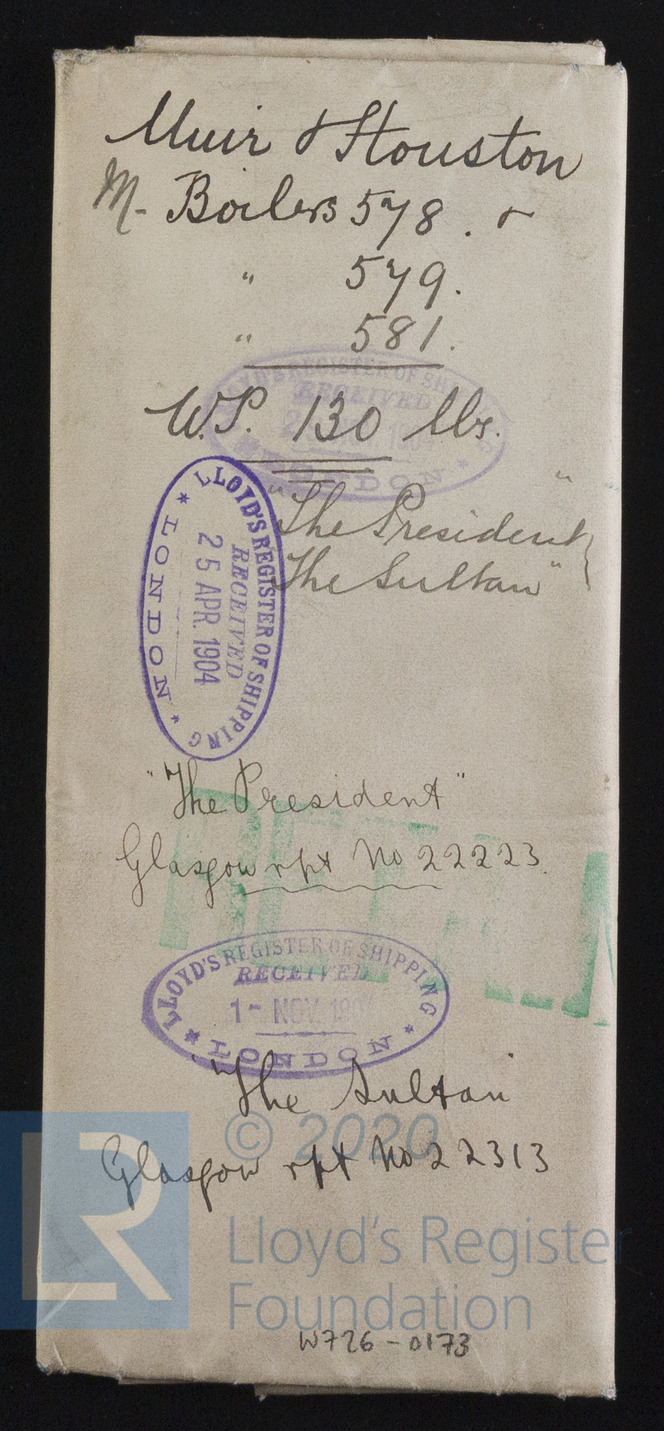 Muir & Houston
M- Boilers 578. &
" 579.
" 581.
LLOYD'S REGISTER OF SHIPPING
RECEIVED
LONDON
W.P. 130 lbs.
"The President"
"The Sultan"
LLOYD'S REGISTER OF SHIPPING
RECEIVED
25 APR. 1904
* LONDON *
"The President"
Glasgow rpt No 22223.
LLOYD'S REGISTER OF SHIPPING
RECEIVED
1 - NOV. 190
* LONDON *
"The Sultan"
© 2020
Glasgow rpt No 22313
LR
Lloyd's Register
Foundation
W726-0173